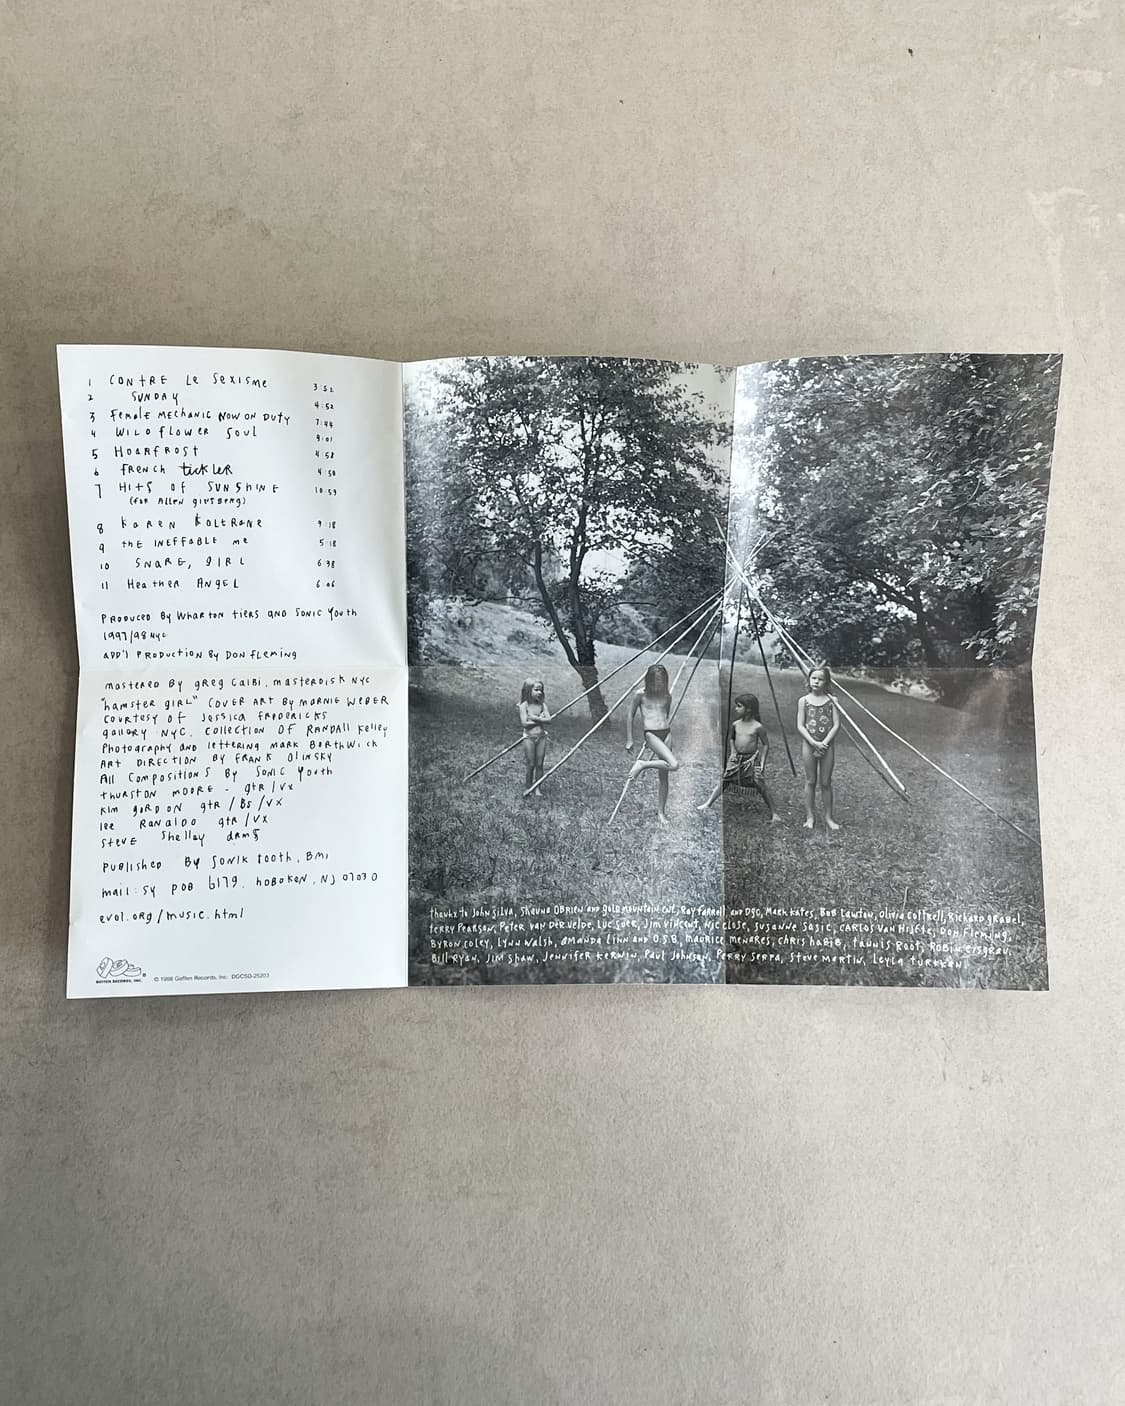 1 CONTRE Le Sexisme 3:52
2 SUNDAY 4:52
3 Female MechaNic NOW ON DUTY 7:44
4 WILDflOWER Soul 9:01
5 HOARFROST 4:58
6 fRENCH tickLER 4:50
7 HITS OF SUNSHINE 10:59
(foR AlleN giNSBeRg)
8 kaREN kOLtRaNe 9:18
9 thE INEFFaBLE Me 5:18
10 SNARE, gIRL 6:38
11 HeatheR ANgEL 6:06
PRODUCED By WhaRtoN tieRs aND SONIC YOUth
1997/98 NYC
aDD'l PRODUCTION By DON fleMINg
MasteReD By gReg CalBi, MasteRDisk NYC
"haMsteR giRL" COVER ART By MaRNie WeBER
COURtesy Of Jessica FReDERICKs
galleRy NYC. COllection OF RANDALL Kelley
Photography and letteRiNg MaRk BoRthWick
ART DIRECtION By fRaNk OliNSky
All COMpositionS By SoNic Youth
thuRstoN MOORE - gtR/VX
KiM goRDON gtR/BS/VX
lee RaNalDO gtR/VX
SteVE Shelley DRMS
PUBlisheD By SONIK tooth, BMi
Mail: SY POB 6179. hoBokeN, NJ 07030
evol.org/music.html
GEFFEN RECORDS, INC. ® © 1998 Geffen Records, Inc. DGCSD-25203
thanks to John Silva, Shauna OBRIEN and goldmountain ent, Ray farrell and Dgc, Mark Kates, Bob Lawton, Olivia Cottrell, Richard grabel,
terry Pearson, Peter van der velde, Luc Suer, Jim Vincent, Nic close, susanne Sasic, CARLOS VAN HijfTe, DON fleming,
BYRON coley, LYNN Walsh, aMANDa liNN and O.S.B, mauRice MENARES, CHRIS haBiB, taNNis Root, RoBiN eisgRau,
Bill RYaN, JiM SHaW, JeNNifeR keRWiN, Paul JohNsoN, PeRRy SeRPa, Steve MaRtiN, leyla tuRkkaN